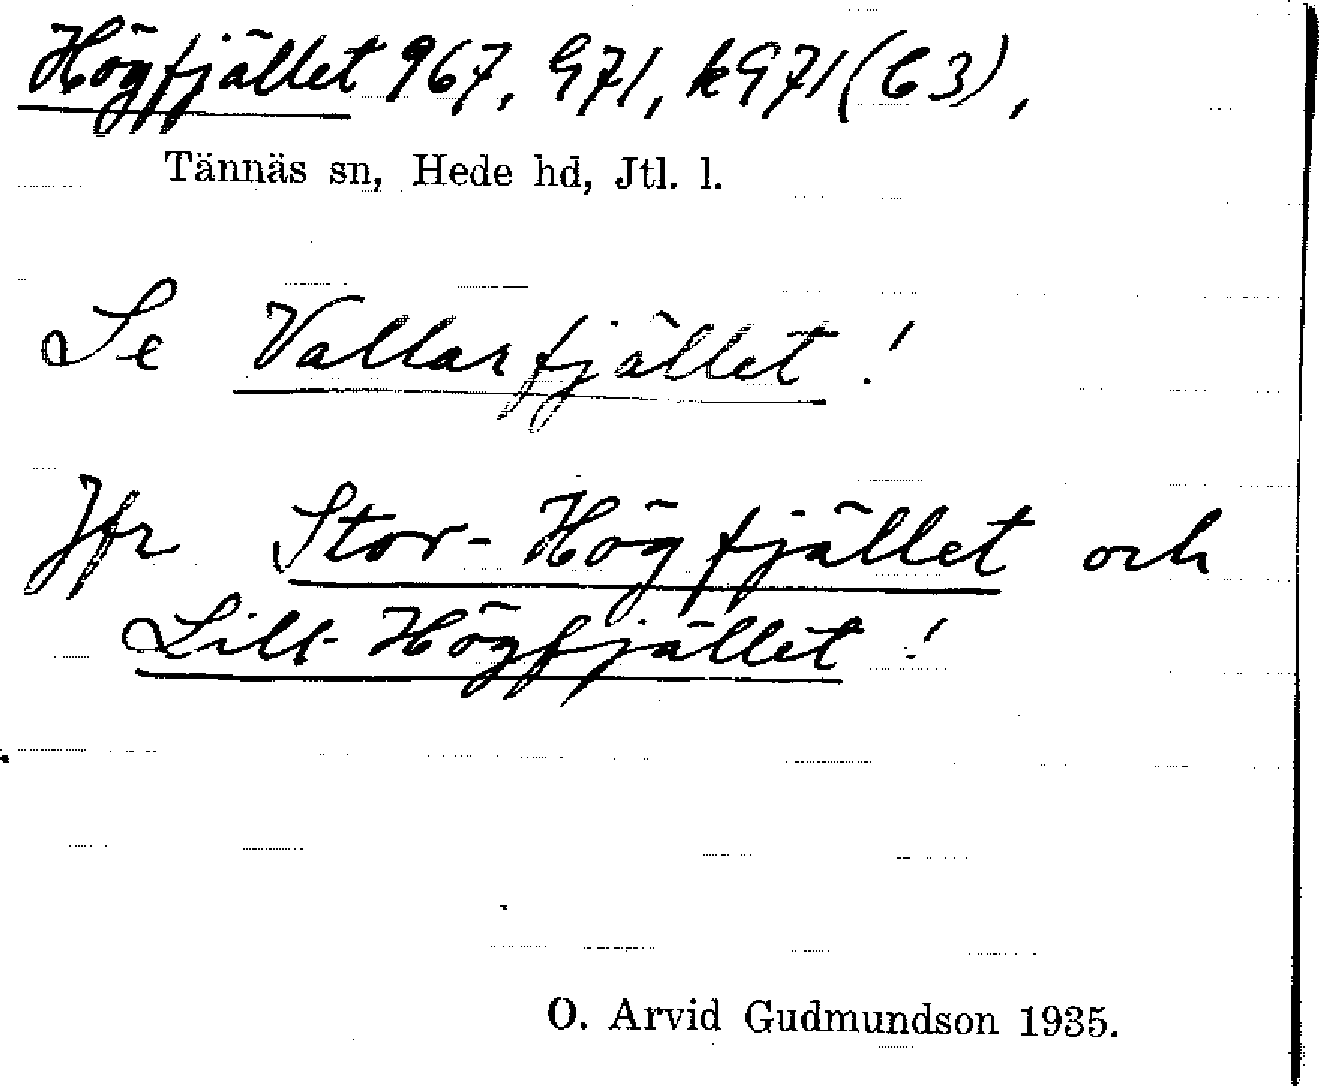 Högfjället 967, 971, k971(C3),
Tännäs sn, Hede hd, Jtl. l.
Se Vallarfjället!
Jfr Stor-Högfjället och
Lill-Högfjället!
O. Arvid Gudmundson 1935.